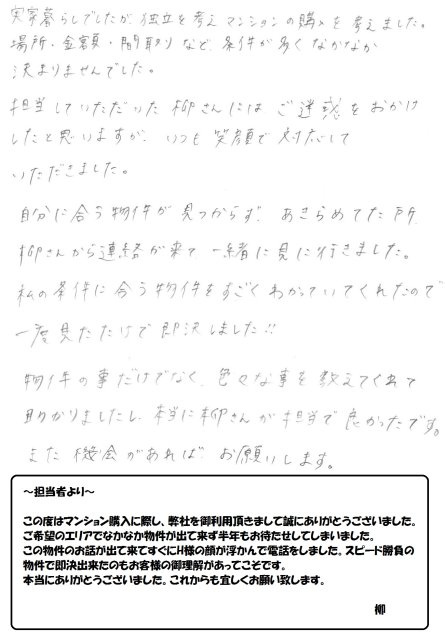 実家暮らしでしたが、独立を考え マンションの購入を考えました。
場所・金額・間取りなど、条件が多くなかなか
決まりませんでした。
担当していただいた柳さんにはご迷惑をおかけ
したと思いますが、いつも笑顔で対応して
いただきました。
自分に合う物件が見つからず、あきらめてた所、
柳さんから連絡が来て一緒に見に行きました。
私の条件に合う物件をすごくわかっていてくれたので
一度見ただけで即決しました!!
物件の事だけでなく、色々な事を教えてくれて
助かりましたし、本当に柳さんが担当で良かったです。
また機会があれば、お願いします。
～担当者より～
この度はマンション購入に際し、弊社を御利用頂きまして誠にありがとうございました。
ご希望のエリアでなかなか物件が出て来ず半年もお待たせしてしまいました。
この物件のお話が出て来てすぐにH様の顔が浮かんで電話をしました。スピード勝負の
物件で即決出来たのもお客様の御理解があってこそです。
本当にありがとうございました。これからも宜しくお願い致します。
柳